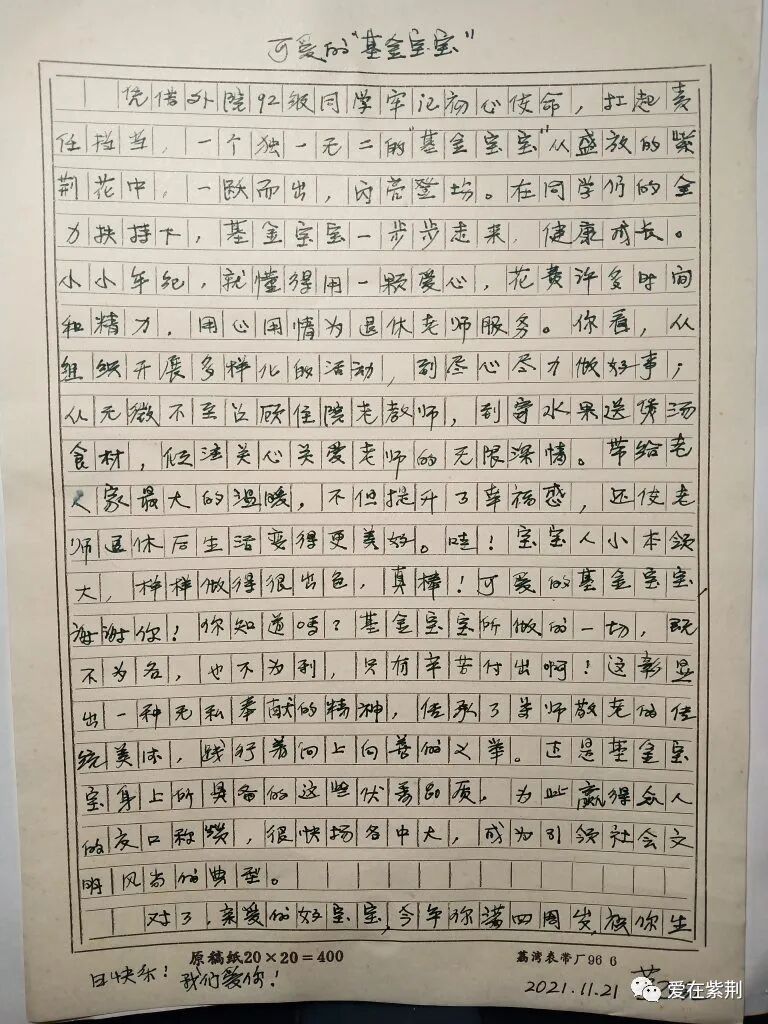 可爱的“基金宝宝”
凭借外院92级同学牢记初心使命，扛起责
任担当，一个独一无二的“基金宝宝”从盛放的紫
荆花中，一跃而出，闪亮登场。在同学们的全
力扶持下，基金宝宝一步步走来，健康成长。
小小年纪，就懂得用一颗爱心，花费许多时间
和精力，用心用情为退休老师服务。你看，从
组织开展多样化的活动，到尽心尽力做好事；
从无微不至照顾住院老教师，到寄水果送煲汤
食材，倾注关心关爱老师的无限深情。带给老
人家最大的温暖，不但提升了幸福感，还使老
师退休后生活变得更美好。哇！宝宝人小本领
大，样样做得很出色，真棒！可爱的基金宝宝，
谢谢你！你知道吗？基金宝宝所做的一切，既
不为名，也不为利，只有辛苦付出啊！这彰显
出一种无私奉献的精神，传承了尊师敬老的传
统美德，践行着向上向善的义举。正是基金宝
宝身上所具备的这些优善品质，为此赢得众人
的交口称赞，很快扬名中大，成为引领社会文
明风尚的典型。
对了，亲爱的好宝宝，今年你满四周岁，祝你生
原稿纸20×20=400 荔湾表带厂96 6
日快乐！我们爱你！ 2021.11.21
爱在紫荆